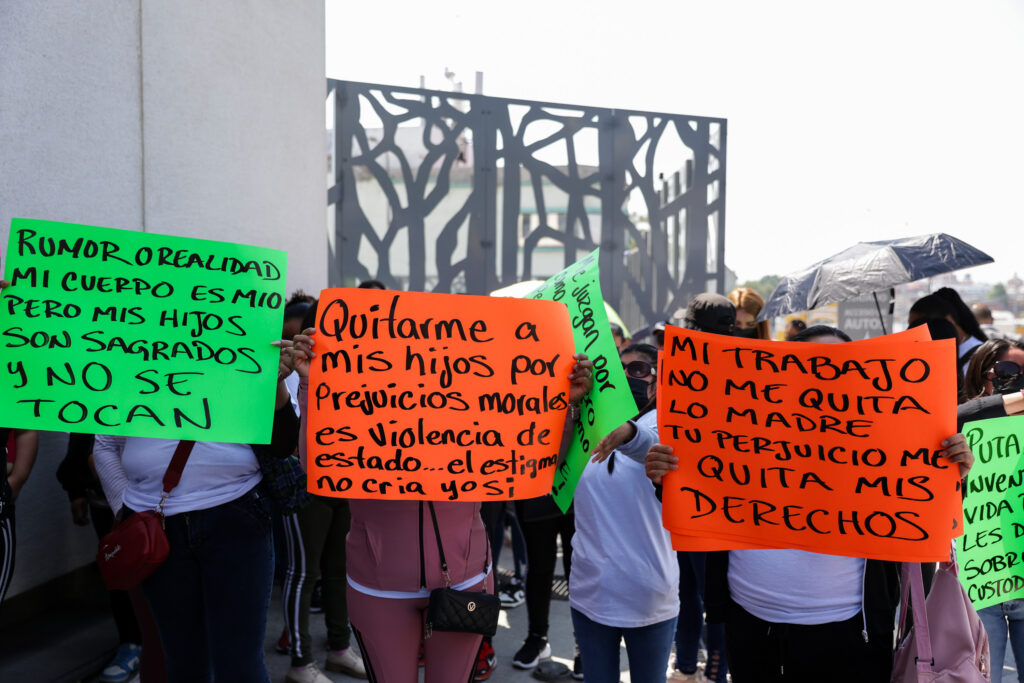 RUMOR O REALIDAD
MI CUERPO ES MIO
PERO MIS HIJOS
SON SAGRADOS
Y NO SE
TOCAN
Quitarme a
mis hijos por
Prejuicios morales
es violencia de
estado... el estigma
no cria yosi
e juzgan por
MI TRABAJO
NO ME QUITA
LO MADRE
TU PERJUICIO ME
QUITA MIS
DERECHOS
ACCESO
AUTO
PUTA
INVEN
VIDA
LES D
SOBR
CUSTOD